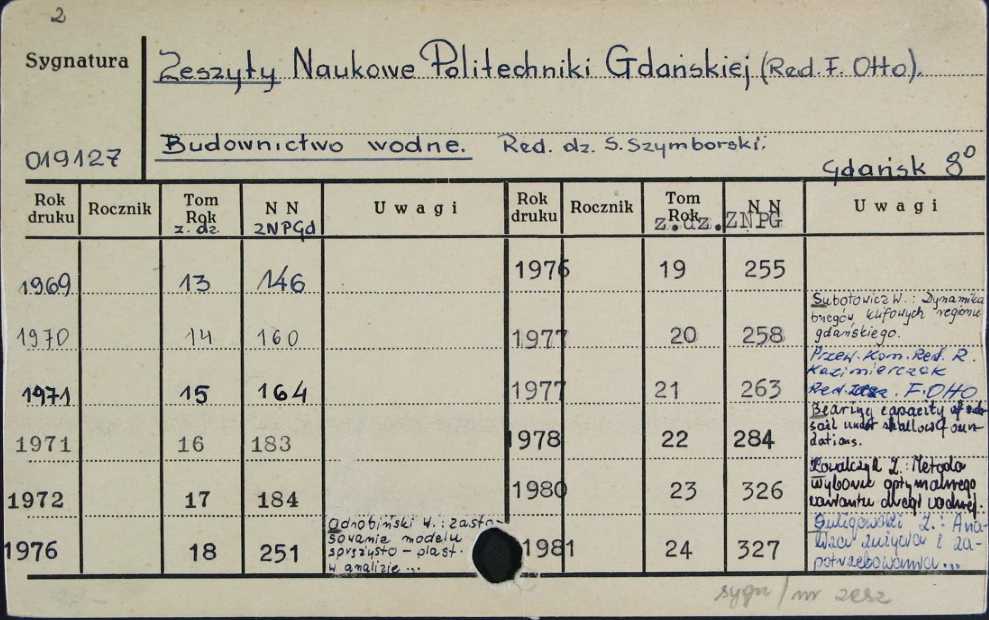 2
Sygnatura
Zeszyty Naukowe Politechniki Gdańskiej (Red. F. Otto).
Budownictwo wodne. Red. dz. S. Szymborski.
019127
Gdańsk 8°
Rok druku Rocznik Tom Rok z. dz. N N ZNPGd Uwagi Rok druku Rocznik Tom Rok z.dz. N N ZNPG Uwagi
1969 13 146
1970 14 160
1971 15 164
1971 16 183
1972 17 184
1976 18 251 Odrobiński W.: zasto-
sowanie modelu
sprężysto - plast.
w analizie ...
1976 19 255
1977 20 258 Subotowicz W.: Dynamika
brzegów klifowych regionu
gdańskiego.
1977 21 263 Przew. Kom. Red. R.
Kazimierczak
Red. F. Otto
1978 22 284 Bearing capacity of sub-
soil under shallow foun-
dations.
1980 23 326 Kowalczyk Z.: Metoda
wyboru optymalnego
wariantu drogi wodnej.
1981 24 327 Sulęgowski Z.: Ana-
liza zużycia i za-
potrzebowania...
sygn / nr zesz